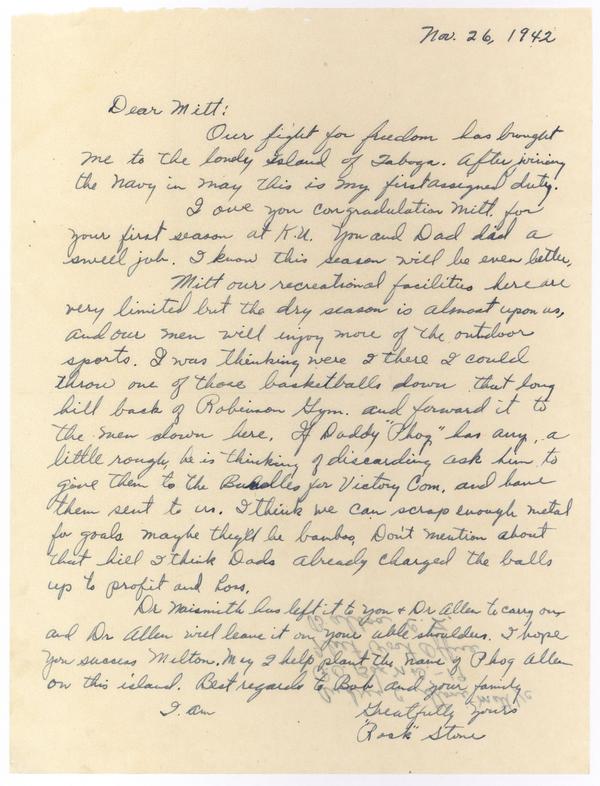 Nov. 26, 1942
Dear Mitt:
Our fight for freedom has brought
me to the lonely Island of Taboga. After joining
the Navy in May this is my first assigned duty.
I owe you congradulation Mitt. for
your first season at K.U. You and Dad did a
swell job. I know this season will be even better.
Mitt our recreational facilities here are
very limited but the dry season is almost upon us,
and our men will enjoy more of the outdoor
sports. I was thinking were I there I could
throw one of those basketballs down that long
hill back of Robinson Gym. and forward it to
the men down here. If Daddy "Phog" has any, a
little rough, he is thinking of discarding ask him to
give them to the Bundles for Victory Com. and have
them sent to us. I think we can scrap enough metal
for goals maybe they'll be bamboo. Don't mention about
that hill I think Dads already charged the balls
up to profit and loss.
Dr Naismith has left it to you & Dr Allen to carry on
and Dr Allen will leave it on your able shoulders. I hope
you success Milton. May I help plant the name of Phog Allen
on this island. Best regards to Bob and your family
I am Greatfully yours
"Rock" Stone